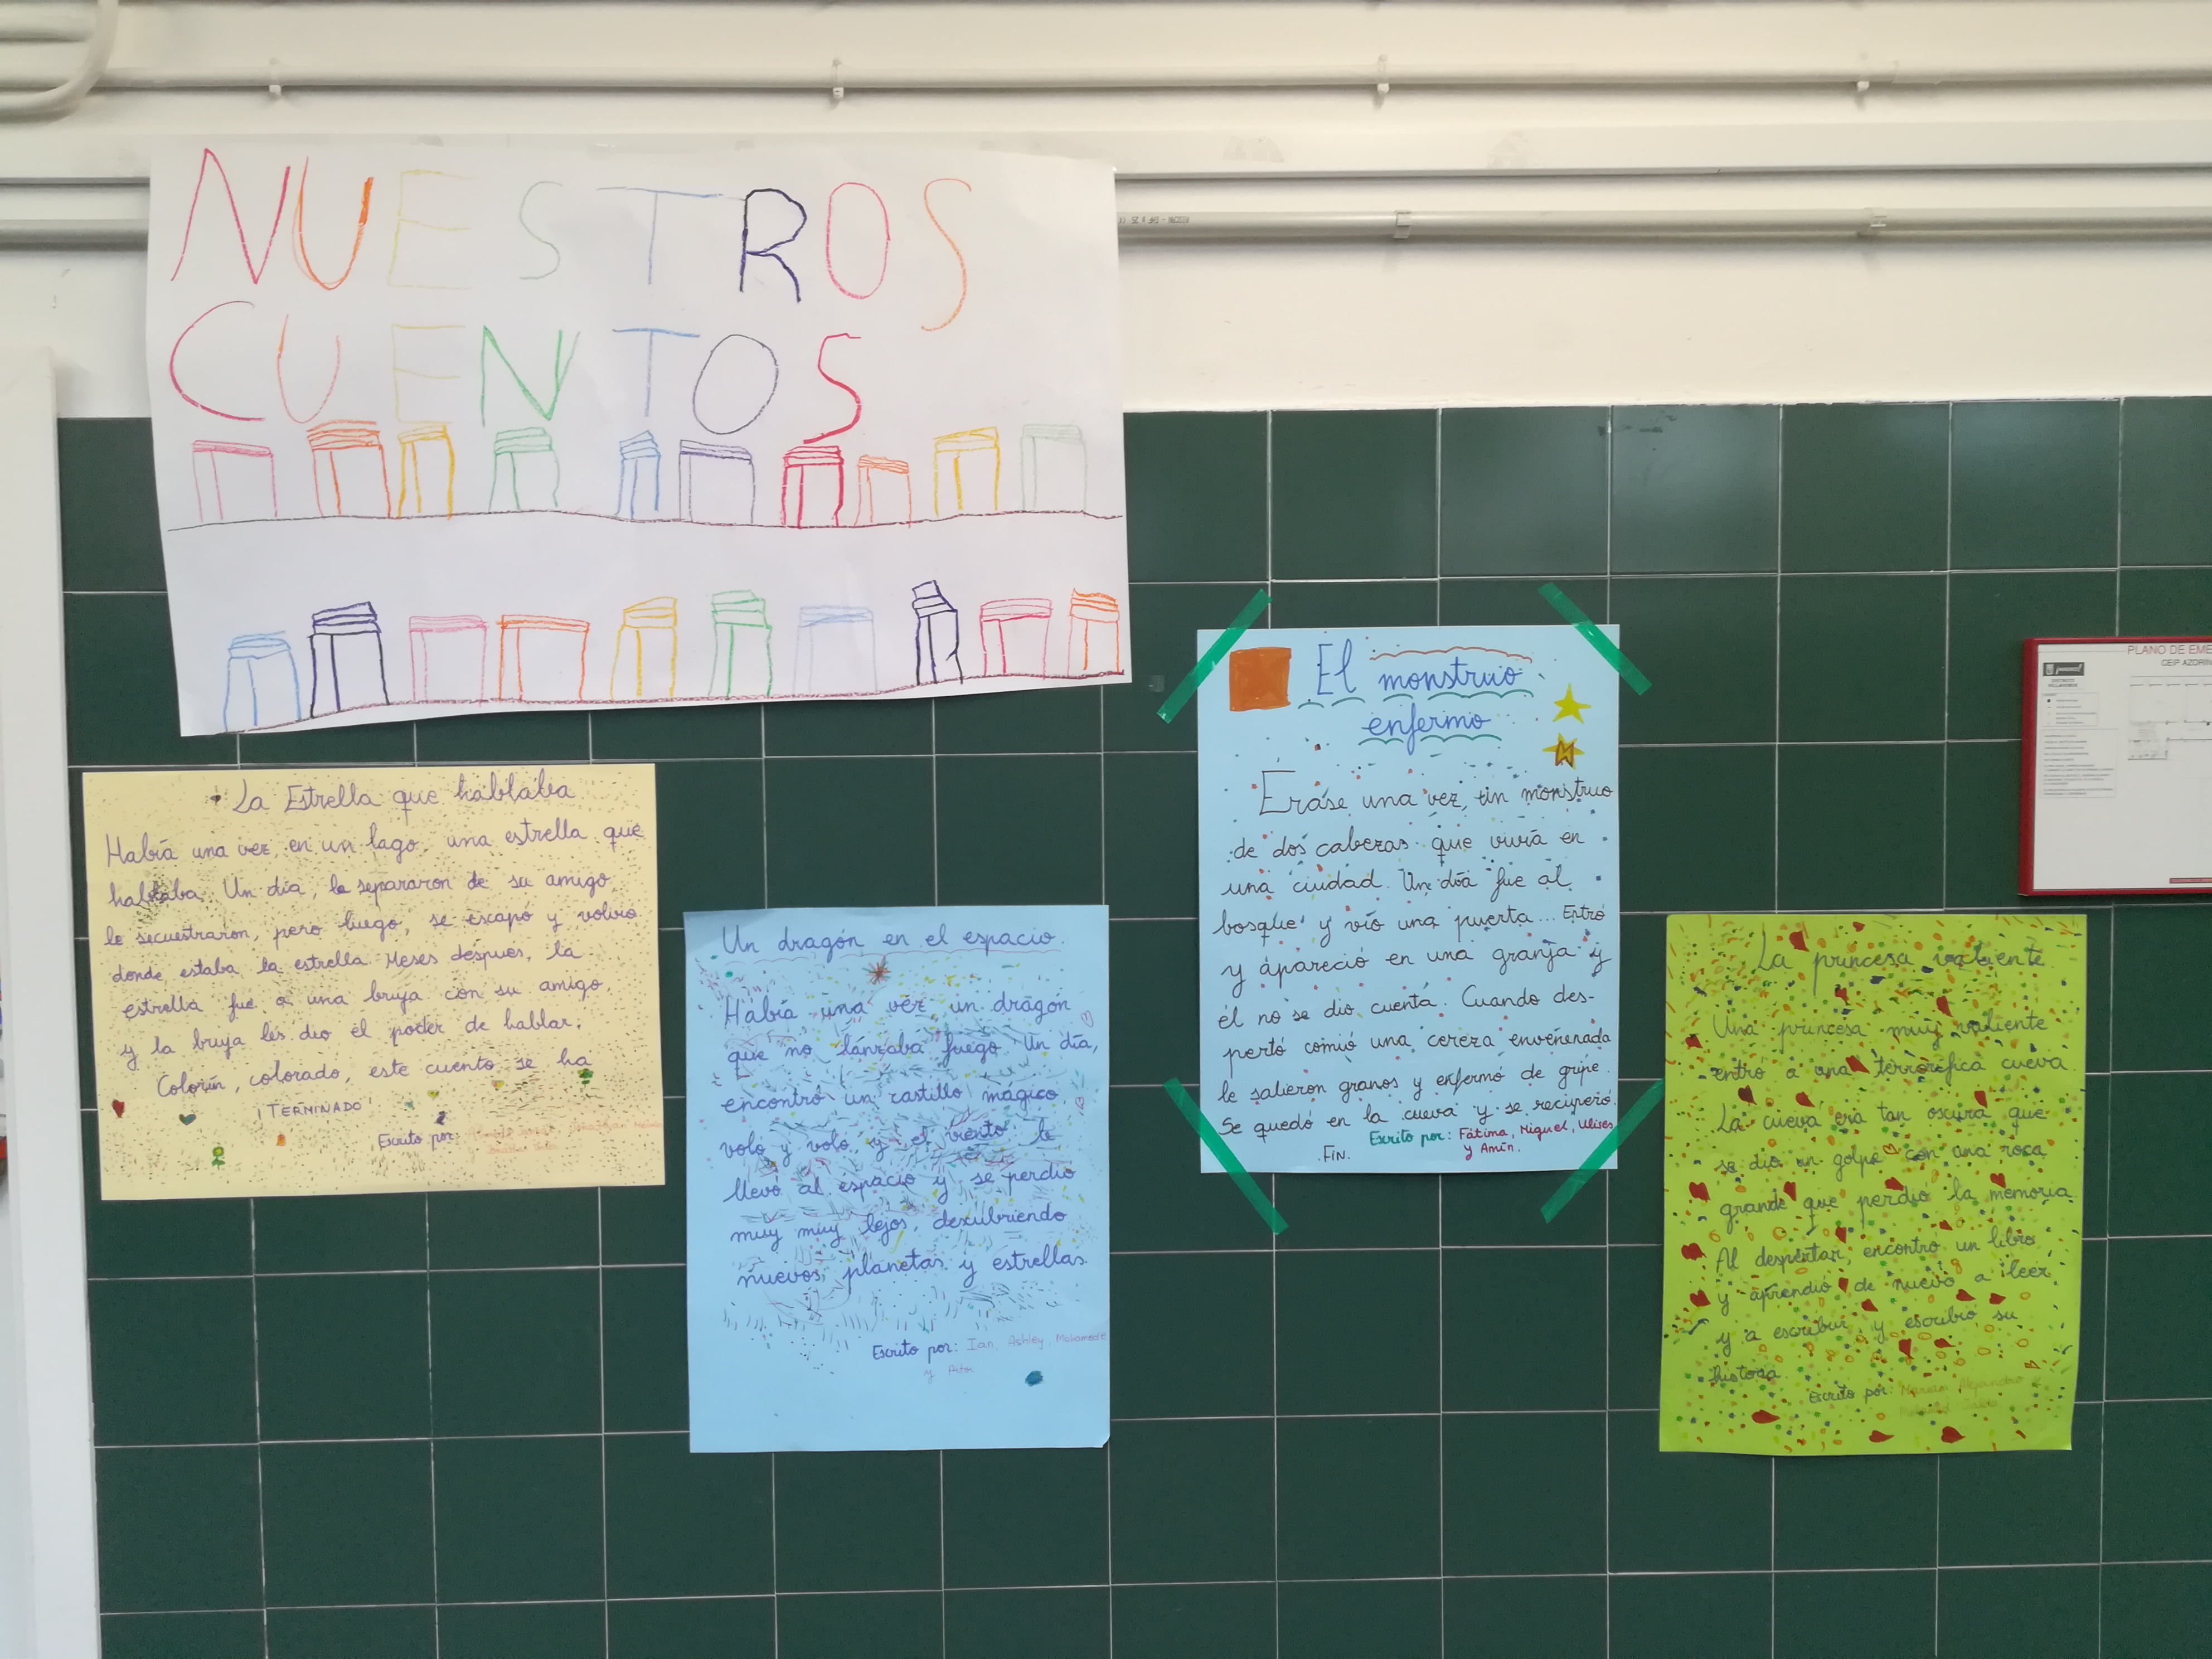 NUESTROS
CUENTOS
La Estrella que hablaba
Había una vez en un lago, una estrella que
hablaba. Un día, la separaron de su amigo,
le secuestraron, pero luego, se escapó y volvió
donde estaba la estrella. Meses después, la
estrella fue a una bruja con su amigo,
y la bruja les dio el poder de hablar.
Colorín, colorado, este cuento se ha
¡TERMINADO!
Escrito por:
Un dragón en el espacio.
Había una vez un dragón
que no lanzaba fuego. Un día,
encontró un castillo mágico
voló y voló, y el viento le
llevó al espacio y se perdió
muy muy lejos, descubriendo
nuevos planetas y estrellas.
Escrito por: Ian, Ashley, Mohamed
y
El monstruo
enfermo
Érase una vez, un monstruo
de dos cabezas que vivía en
una ciudad. Un día fue al
bosque y vio una puerta... Entró
y apareció en una granja y
él no se dio cuenta. Cuando des-
pertó comió una cereza envenenada
le salieron granos y enfermó de gripe.
Se quedó en la cueva y se recuperó.
FIN.
Escrito por: Fátima, Miguel, Ulises
y Amin.
La princesa valiente
Una princesa muy valiente
entró a una terrorífica cueva.
La cueva era tan oscura que
se dio un golpe con una roca
grande que perdió la memoria.
Al despertar, encontró un libro
y aprendió de nuevo a leer
y a escribir y escribió su
historia.
Escrito por: Alejandro
PLANO DE EME
CEIP AZORÍN